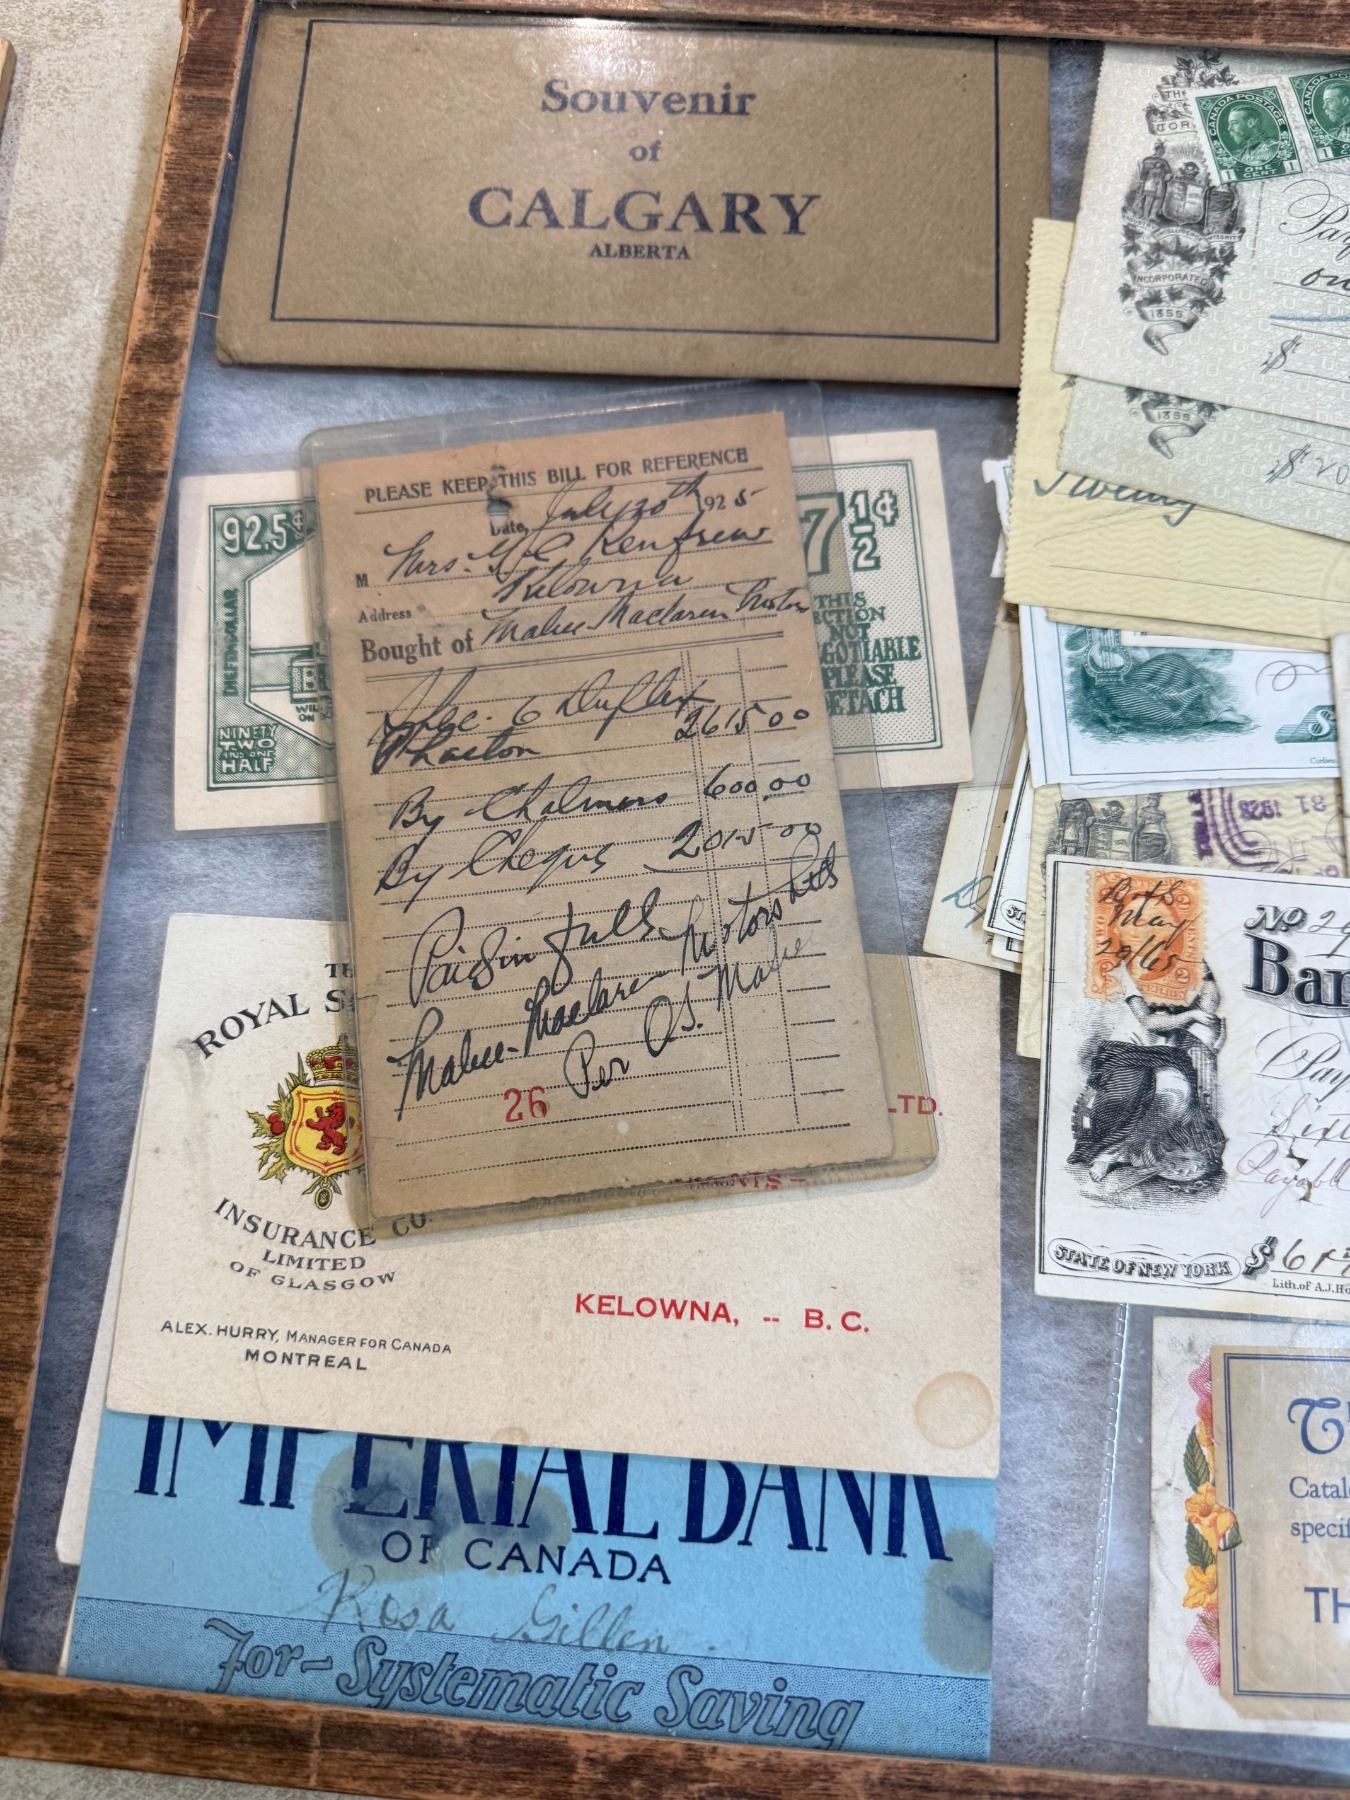 Souvenir
of
CALGARY
ALBERTA
PLEASE KEEP THIS BILL FOR REFERENCE
Date, July 20th 1925
M Mrs. G. C Renfrew
Address Kelowna
Bought of Mabee Maclaren Motors
6 Duplex
Phaeton 2615.00
By Chalmers 600.00
By Cheque 2015.00
Paid in full
Mabee-Maclaren Motors Ltd
Per O.S. Mabee
26
92.5¢
DIGITOLLAR
NINETY
TWO
AND ONE
HALF
7 1/2 ¢
THIS
NOT
PLEASE
DETACH
ROYAL
INSURANCE CO.
LIMITED
OF GLASGOW
ALEX. HURRY, MANAGER FOR CANADA
MONTREAL
LTD.
KELOWNA, -- B. C.
IMPERIAL BANK
OF CANADA
Rosa Gillen
For- Systematic Saving
CANADA POSTAGE
1 ONE CENT 1
CANADA POSTAGE
1
INCORPORATED
1855
Pay
on
$
1855
$20
Twenty
$
May
29/65
No 29
Ban
Pay
Payable
STATE OF NEW YORK
$
Lith. of A.J. Ho
Catal
specif
TH